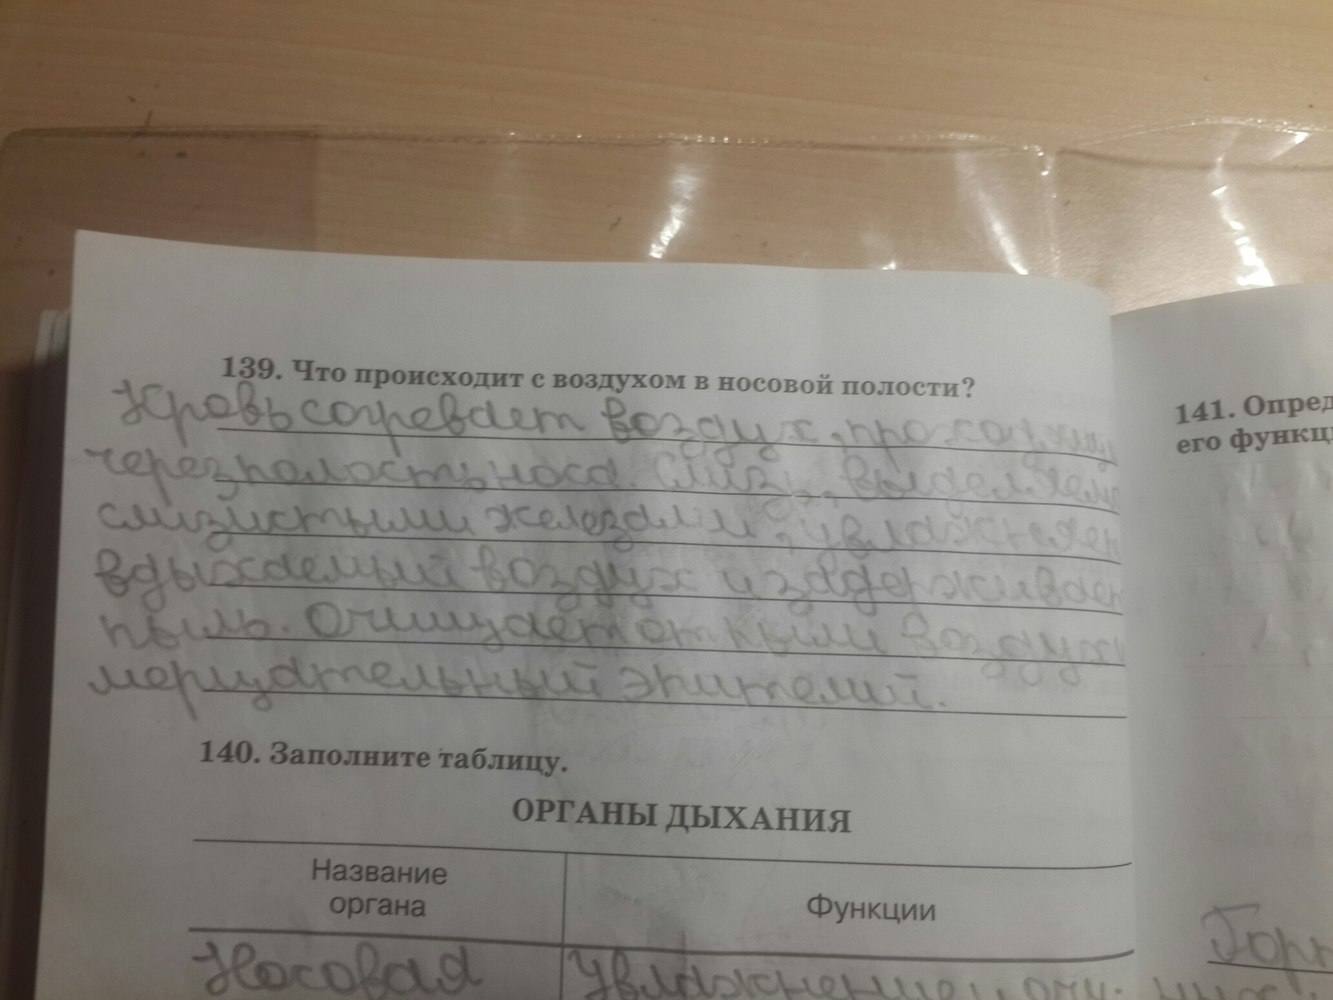 139. Что происходит с воздухом в носовой полости?
Кровь согревает воздух, проходящий
через полость носа. Слизь, выделяемая
слизистыми железами, увлажняет
вдыхаемый воздух и задерживает
пыль. Очищает от пыли воздух
мерцательный эпителий.
140. Заполните таблицу.
ОРГАНЫ ДЫХАНИЯ
Название
органа
Функции
Носовая
Увлажнение,
141. Опред
его функц
Горт